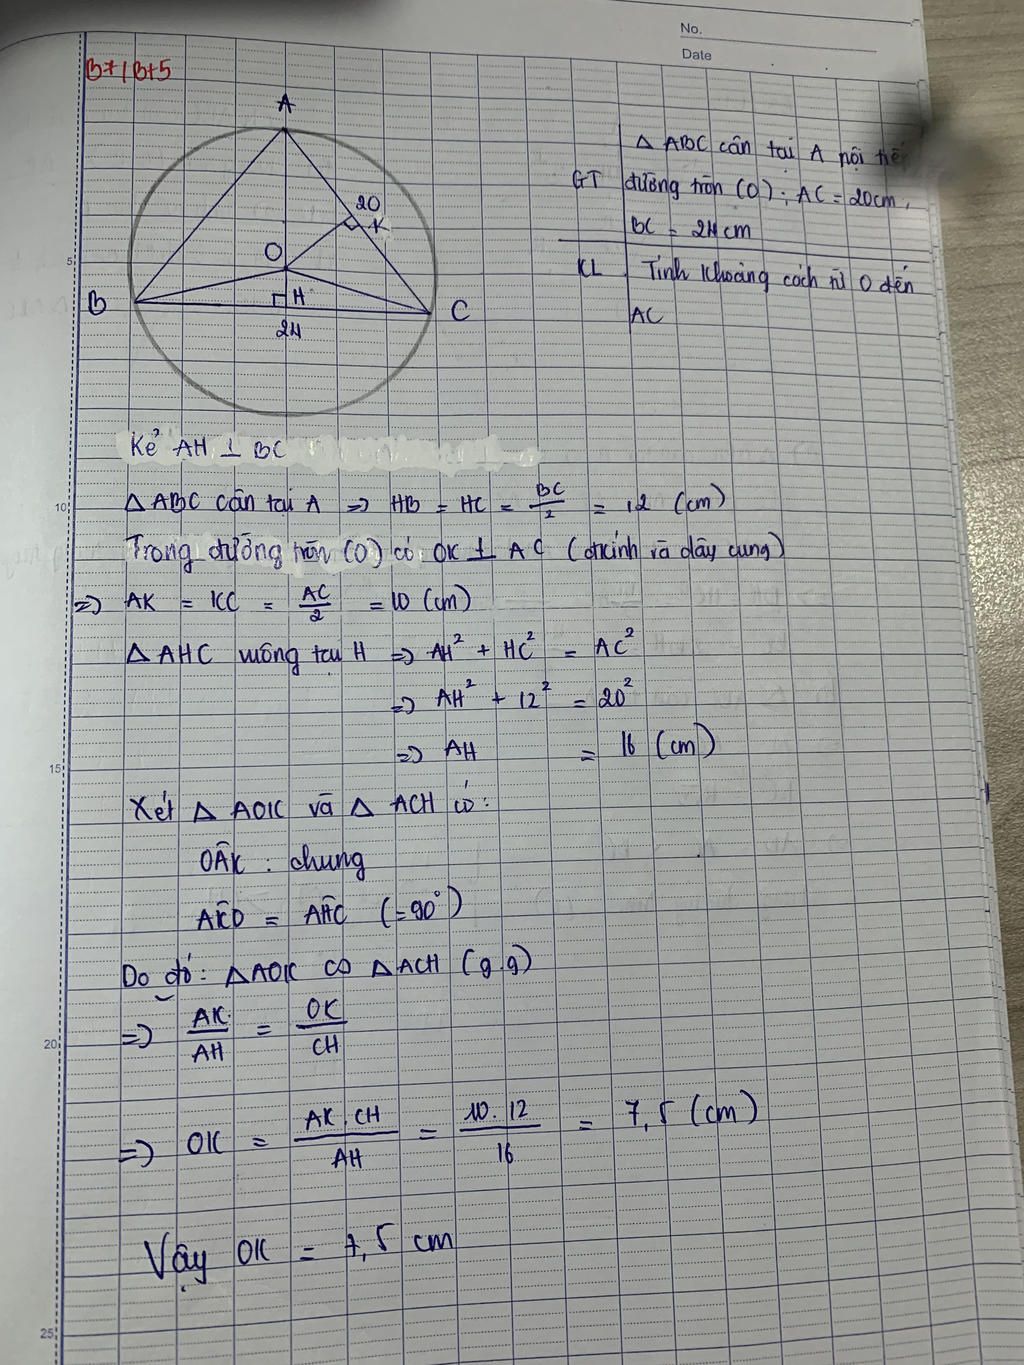 No.
Date
B7/Bt5
A
20
K
O
B
H
C
24
Δ ABC cân tại A nội tiế
GT đường tròn (O); AC = 20cm,
BC = 24cm
KL Tính khoảng cách từ O đến
AC
Kẻ AH ⊥ BC
Δ ABC cân tại A => HB = HC = BC/2 = 12 (cm)
Trong đường tròn (O) có OK ⊥ AC (đkính và dây cung)
=> AK = KC = AC/2 = 10 (cm)
Δ AHC vuông tại H => AH² + HC² = AC²
=> AH² + 12² = 20²
=> AH = 16 (cm)
Xét Δ AOK và Δ ACH có:
OÂK : chung
AK̂O = AĤC (=90°)
Do đó: ΔAOK ∽ ΔACH (g.g)
=> AK/AH = OK/CH
=> OK = AK.CH/AH = 10.12/16 = 7,5 (cm)
Vậy OK = 7,5 cm
5
10
15
20
25